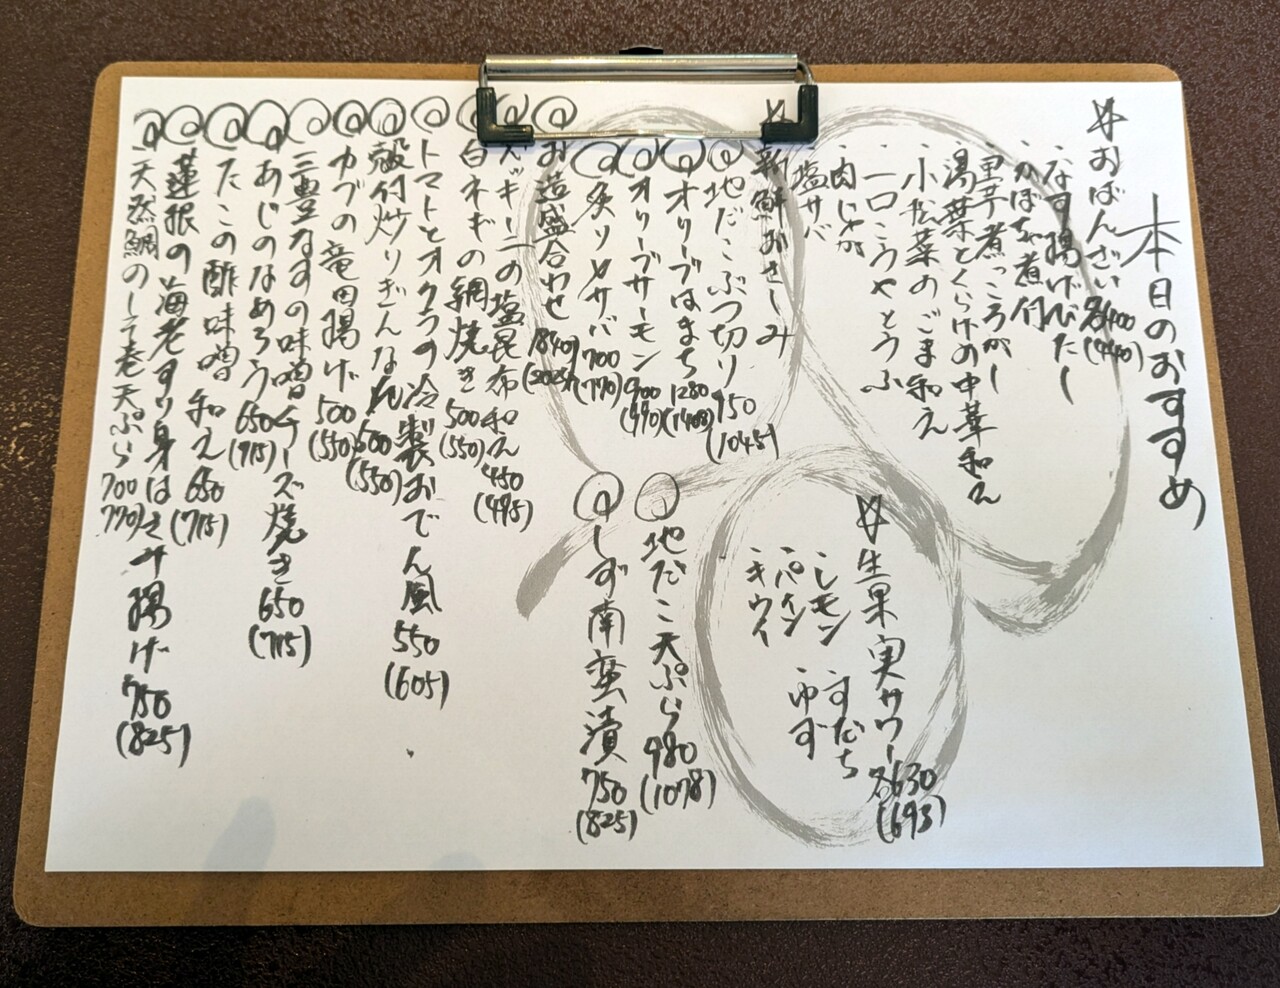 本日のおすすめ
おばんざい 各400
(440)
・なす揚げびたし
・かぼちゃ煮付
・里芋煮っころがし
・湯葉とくらげの中華和え
・小松菜のごま和え
・一口こうやとうふ
・肉じゃが
・塩サバ
新鮮おさしみ
地だこぶつ切り 950
(1045)
オリーブはまち 1280
(1408)
オリーブサーモン 900
(990)
炙りメサバ 700
(770)
お造盛合わせ 1840
ズッキーニの塩昆布和え 450
(495)
白ネギの網焼き 500
(550)
トマトとオクラの冷製おでん風 550
(605)
殻付炒りぎんなん 500
(550)
カブの竜田揚げ 500
(550)
三豊なすの味噌チーズ焼き 650
(715)
あじのなめろう 650
(715)
たこの酢味噌和え 650
(715)
蓮根の海老すり身はさみ揚げ 750
(825)
天然鯛のしそ巻天ぷら 700
770)
生果実サワー 各630
(693)
・レモン ・すだち
・パイン ・ゆず
・キウイ
地だこ天ぷら 980
(1078)
しず南蛮漬 750
(825)